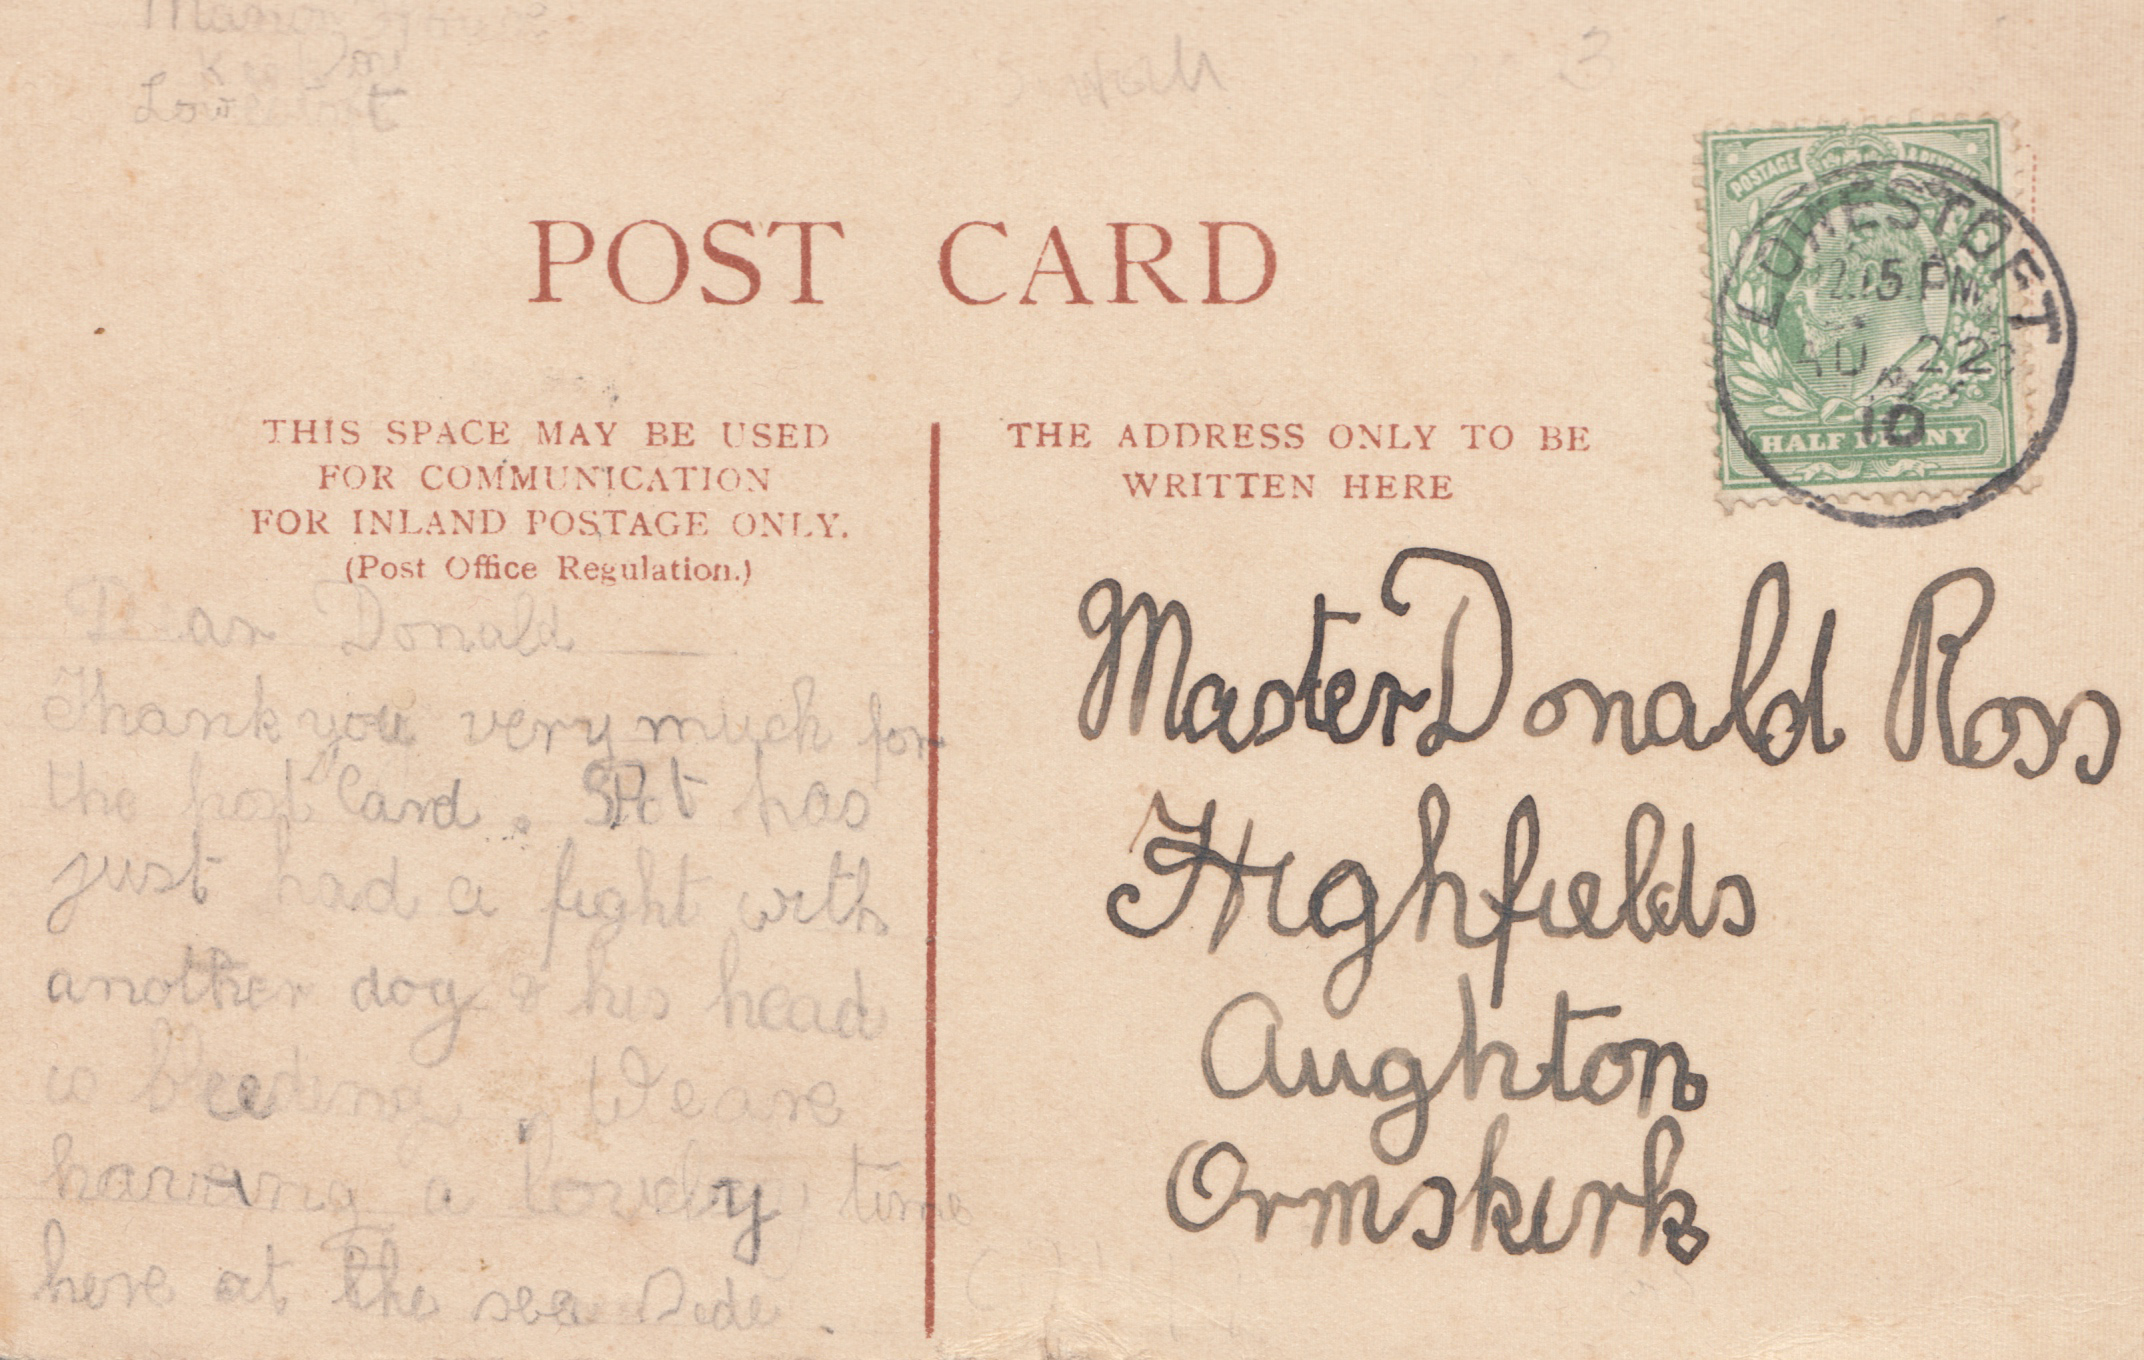 Lowestoft
3
POST CARD
POSTAGE & REVENUE
LOWESTOFT
2.15 PM
AU 22
10
HALFPENNY
THIS SPACE MAY BE USED
FOR COMMUNICATION
FOR INLAND POSTAGE ONLY.
(Post Office Regulation.)
THE ADDRESS ONLY TO BE
WRITTEN HERE
Dear Donald
Thank you very much for
the post Card. Spot has
just had a fight with
another dog & his head
is bleeding. We are
having a lovely time
here at the sea Side.
Master Donald Ross
Highfields
Aughton
Ormskirk